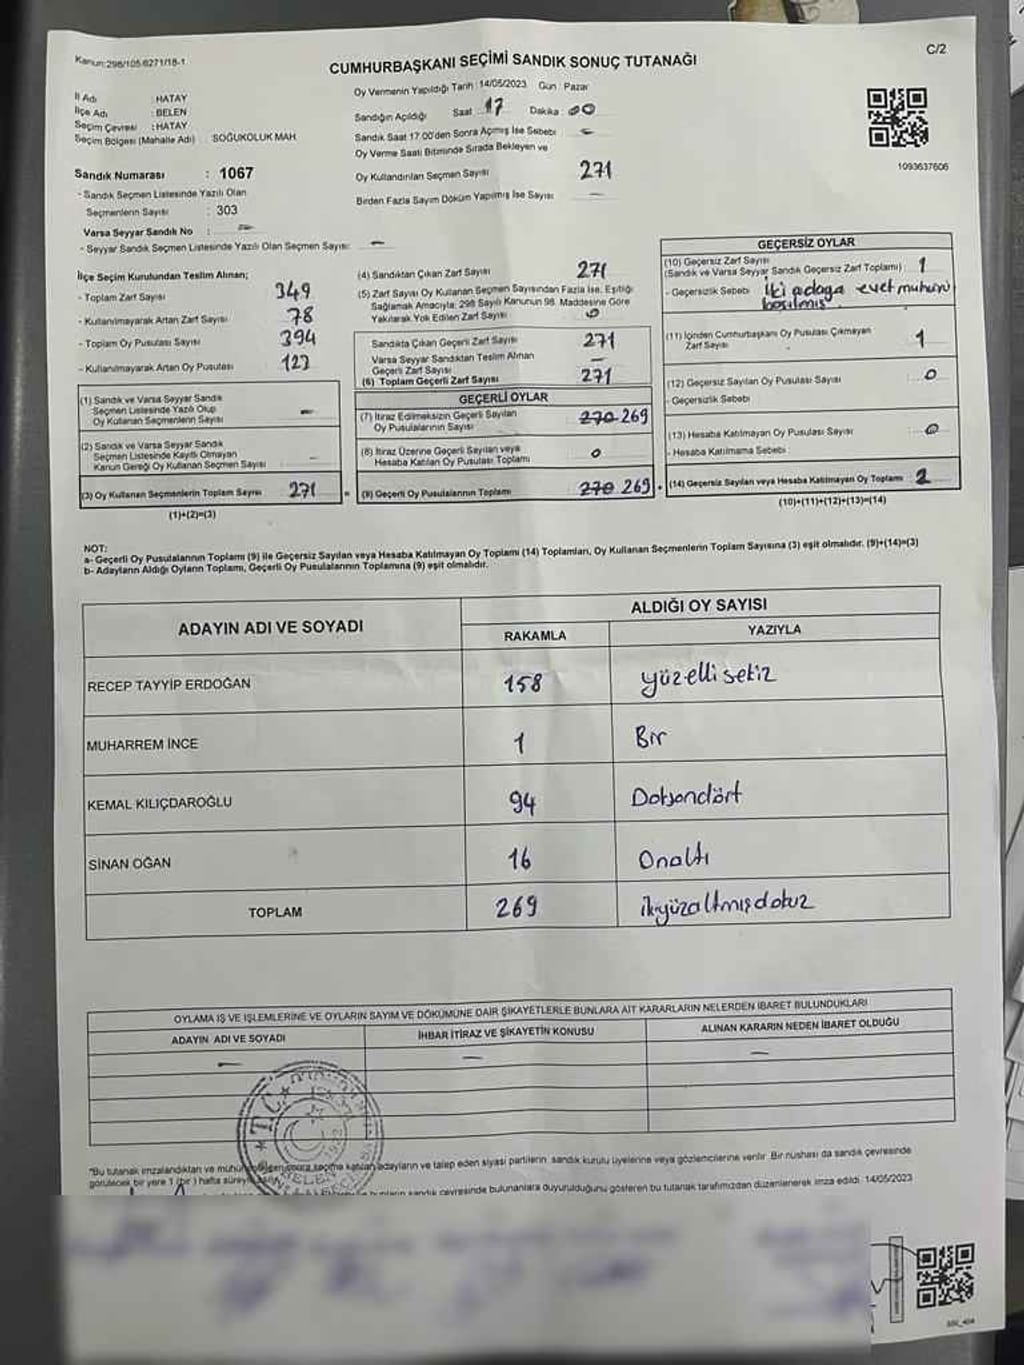 Kanun:298/105 6271/18-1
C/2
CUMHURBAŞKANI SEÇİMİ SANDIK SONUÇ TUTANAĞI
İl Adı : HATAY
İlçe Adı : BELEN
Seçim Çevresi : HATAY
Seçim Bölgesi (Mahalle Adı) : SOĞUKOLUK MAH
Sandık Numarası : 1067
- Sandık Seçmen Listesinde Yazılı Olan
Seçmenlerin Sayısı : 303
Varsa Seyyar Sandık No : -
- Seyyar Sandık Seçmen Listesinde Yazılı Olan Seçmen Sayısı: -
Oy Vermenin Yapıldığı Tarih :14/05/2023 Gün : Pazar
Sandığın Açıldığı Saat : 17 Dakika : 00
Sandık Saat 17.00'den Sonra Açılmış İse Sebebi : -
Oy Verme Saati Bitiminde Sırada Bekleyen ve
Oy Kullandırılan Seçmen Sayısı 271
Birden Fazla Sayım Döküm Yapılmış İse Sayısı -
1093637606
İlçe Seçim Kurulundan Teslim Alınan;
- Toplam Zarf Sayısı 349
- Kullanılmayarak Artan Zarf Sayısı 78
- Toplam Oy Pusulası Sayısı 394
- Kullanılmayarak Artan Oy Pusulası 123
(1) Sandık ve Varsa Seyyar Sandık
Seçmen Listesinde Yazılı Olup
Oy Kullanan Seçmenlerin Sayısı -
(2) Sandık ve Varsa Seyyar Sandık
Seçmen Listesinde Kayıtlı Olmayan
Kanun Gereği Oy Kullanan Seçmen Sayısı -
(3) Oy Kullanan Seçmenlerin Toplam Sayısı 271
(1)+(2)=(3)
(4) Sandıktan Çıkan Zarf Sayısı 271
(5) Zarf Sayısı Oy Kullanan Seçmen Sayısından Fazla İse, Eşitliği
Sağlamak Amacıyla; 298 Sayılı Kanunun 98. Maddesine Göre
Yakılarak Yok Edilen Zarf Sayısı 0
Sandıkta Çıkan Geçerli Zarf Sayısı 271
Varsa Seyyar Sandıktan Teslim Alınan
Geçerli Zarf Sayısı -
(6) Toplam Geçerli Zarf Sayısı 271
GEÇERLİ OYLAR
(7) İtiraz Edilmeksizin Geçerli Sayılan
Oy Pusulalarının Sayısı 270 269
(8) İtiraz Üzerine Geçerli Sayılan veya
Hesaba Katılan Oy Pusulası Toplamı 0
(9) Geçerli Oy Pusulalarının Toplamı 270 269
GEÇERSİZ OYLAR
(10) Geçersiz Zarf Sayısı
(Sandık ve Varsa Seyyar Sandık Geçersiz Zarf Toplamı) : 1
- Geçersizlik Sebebi : iki adaya evet muhuru
basılmış
(11) İçinden Cumhurbaşkanı Oy Pusulası Çıkmayan
Zarf Sayısı 1
(12) Geçersiz Sayılan Oy Pusulası Sayısı 0
- Geçersizlik Sebebi
(13) Hesaba Katılmayan Oy Pusulası Sayısı 0
- Hesaba Katılmama Sebebi
(14) Geçersiz Sayılan veya Hesaba Katılmayan Oy Toplamı : 2
(10)+(11)+(12)+(13)=(14)
NOT:
a- Geçerli Oy Pusulalarının Toplamı (9) ile Geçersiz Sayılan veya Hesaba Katılmayan Oy Toplamı (14) Toplamları, Oy Kullanan Seçmenlerin Toplam Sayısına (3) eşit olmalıdır. (9)+(14)=(3)
b- Adayların Aldığı Oyların Toplamı, Geçerli Oy Pusulalarının Toplamına (9) eşit olmalıdır.
ADAYIN ADI VE SOYADI
ALDIĞI OY SAYISI
RAKAMLA YAZIYLA
RECEP TAYYİP ERDOĞAN 158 yüzellisekiz
MUHARREM İNCE 1 Bir
KEMAL KILIÇDAROĞLU 94 Doksandört
SİNAN OĞAN 16 Onaltı
TOPLAM 269 ikiyüzaltmışdokuz
OYLAMA İŞ VE İŞLEMLERİNE VE OYLARIN SAYIM VE DÖKÜMÜNE DAİR ŞİKAYETLERLE BUNLARA AİT KARARLARIN NELERDEN İBARET BULUNDUKLARI
ADAYIN ADI VE SOYADI İHBAR İTİRAZ VE ŞİKAYETİN KONUSU ALINAN KARARIN NEDEN İBARET OLDUĞU
- - -
T.C.
BELEN
*Bu tutanak imzalandıktan ve mühürlendikten sonra seçime katılan adayların ve talep eden siyasi partilerin, sandık kurulu üyelerine veya gözlemcilerine verilir. Bir nüshası da sandık çevresinde
görülecek bir yere 1 (bir) hafta süreyle
bunların sandık çevresinde bulunanlara duyurulduğunu gösteren bu tutanak tarafımızdan düzenlenerek imza edildi. 14/05/2023